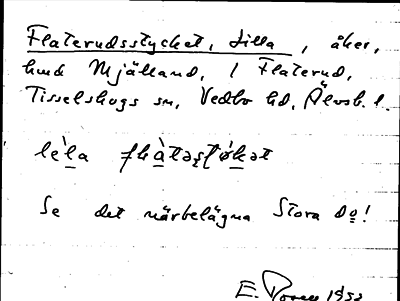 Flaterudsstycket, Lilla, åker,
hmd Mjälland, 1 Flaterud,
Tisselskogs sn, Vedbo hd, Älvsb. l.
Se det närbelägna Stora Do!
E. 1952